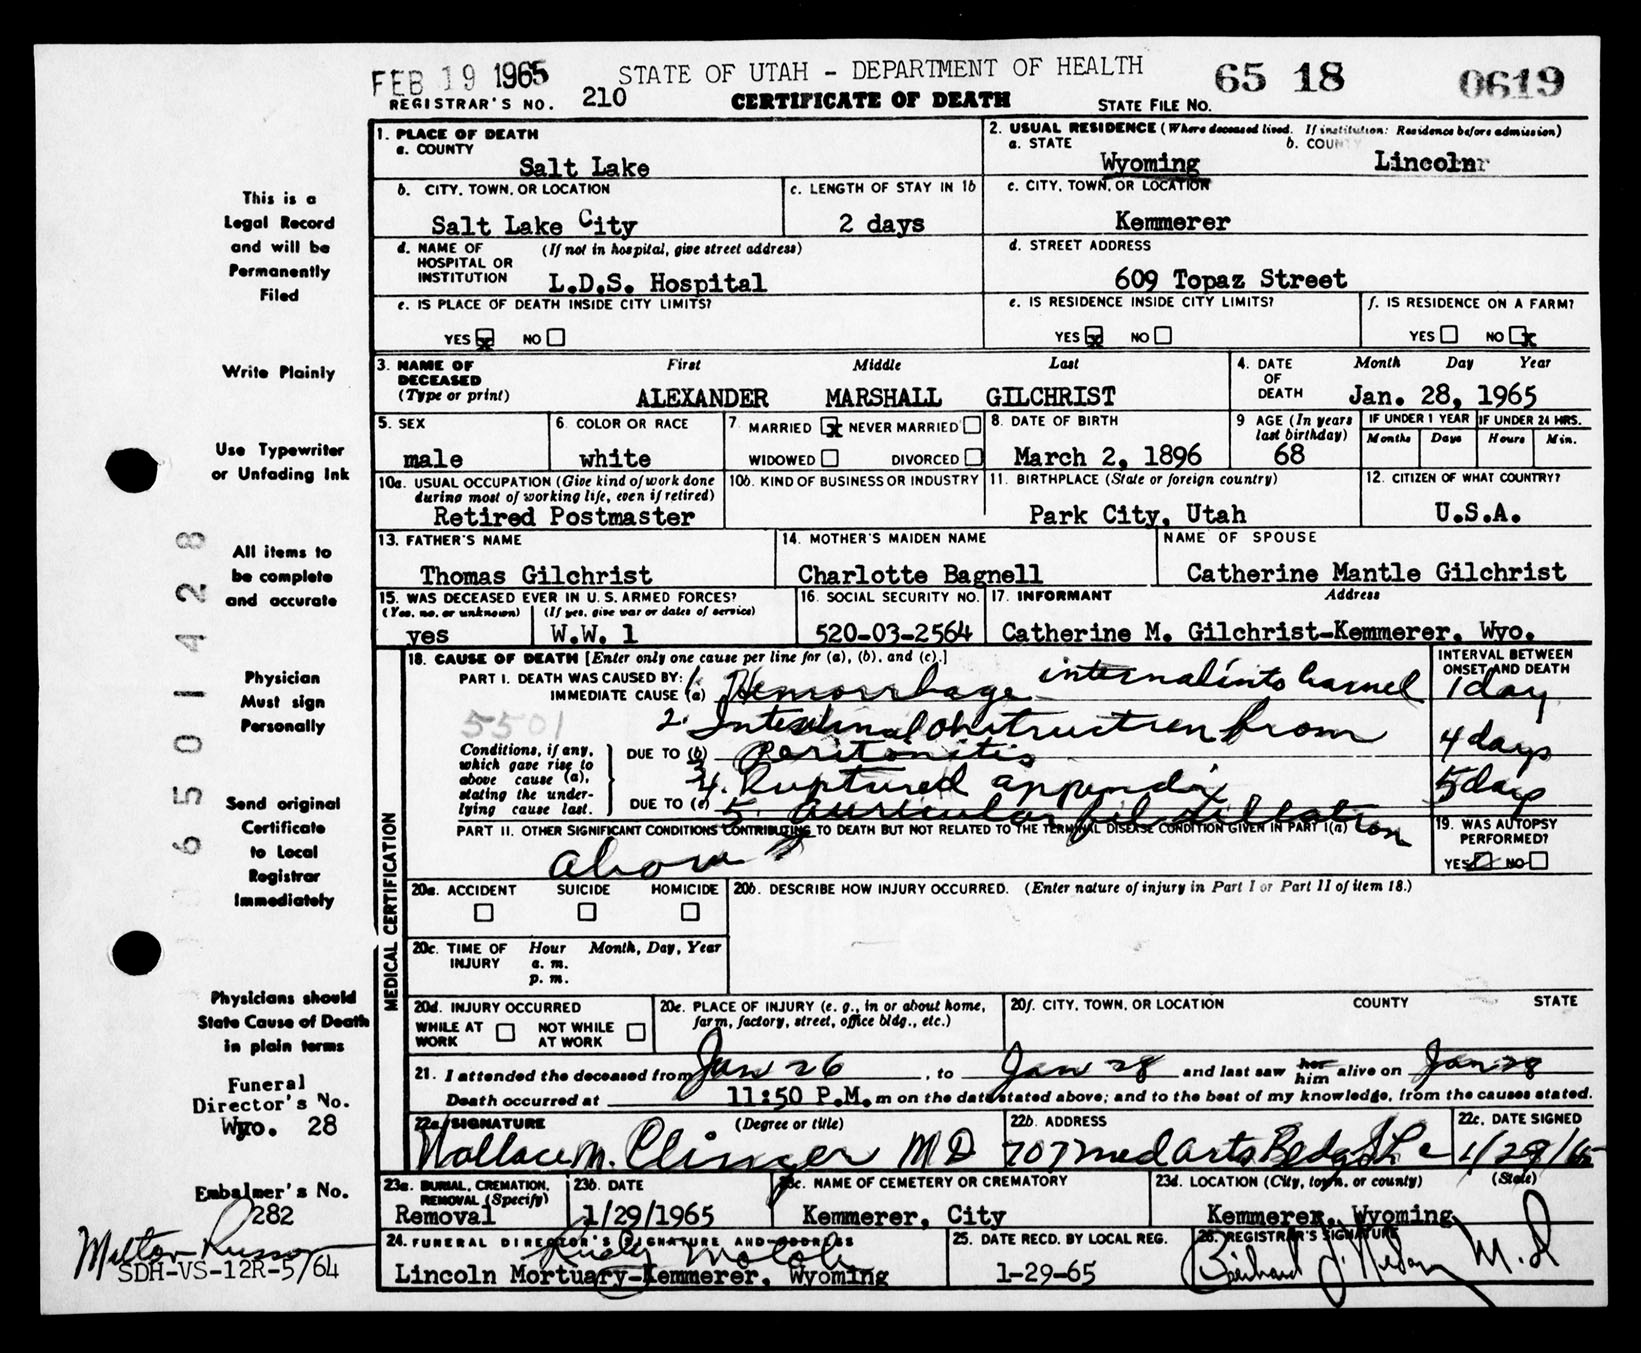 FEB 19 1965 STATE OF UTAH - DEPARTMENT OF HEALTH 65 18 0619
REGISTRAR'S NO. 210 CERTIFICATE OF DEATH STATE FILE NO.
This is a
Legal Record
and will be
Permanently
Filed
Write Plainly
Use Typewriter
or Unfading Ink
All items to
be complete
and accurate
Physician
Must sign
Personally
Send original
Certificate
to Local
Registrar
Immediately
Physicians should
State Cause of Death
in plain terms
Funeral
Director's No.
Wyo. 28
Embalmer's No.
282
SDH-VS-12R-5/64
6501428
1. PLACE OF DEATH
a. COUNTY
Salt Lake
2. USUAL RESIDENCE (Where deceased lived. If institution: Residence before admission)
a. STATE b. COUNTY
Wyoming Lincoln
b. CITY, TOWN, OR LOCATION
Salt Lake City
c. LENGTH OF STAY IN 1b
2 days
c. CITY, TOWN, OR LOCATION
Kemmerer
d. NAME OF (If not in hospital, give street address)
HOSPITAL OR
INSTITUTION L.D.S. Hospital
d. STREET ADDRESS
609 Topaz Street
e. IS PLACE OF DEATH INSIDE CITY LIMITS?
YES x NO
e. IS RESIDENCE INSIDE CITY LIMITS?
YES x NO
f. IS RESIDENCE ON A FARM?
YES NO x
3. NAME OF First Middle Last
DECEASED
(Type or print) ALEXANDER MARSHALL GILCHRIST
4. DATE Month Day Year
OF
DEATH Jan. 28, 1965
5. SEX
male
6. COLOR OR RACE
white
7. MARRIED x NEVER MARRIED
WIDOWED DIVORCED
8. DATE OF BIRTH
March 2, 1896
9 AGE (In years
last birthday)
68
IF UNDER 1 YEAR IF UNDER 24 HRS.
Months Days Hours Min.
10a. USUAL OCCUPATION (Give kind of work done
during most of working life, even if retired)
Retired Postmaster
10b. KIND OF BUSINESS OR INDUSTRY
11. BIRTHPLACE (State or foreign country)
Park City, Utah
12. CITIZEN OF WHAT COUNTRY?
U.S.A.
13. FATHER'S NAME
Thomas Gilchrist
14. MOTHER'S MAIDEN NAME
Charlotte Bagnell
NAME OF SPOUSE
Catherine Mantle Gilchrist
15. WAS DECEASED EVER IN U.S. ARMED FORCES?
(Yes, no, or unknown) (If yes, give war or dates of service)
yes W.W. 1
16. SOCIAL SECURITY NO.
520-03-2564
17. INFORMANT Address
Catherine M. Gilchrist-Kemmerer, Wyo.
MEDICAL CERTIFICATION
18. CAUSE OF DEATH [Enter only one cause per line for (a), (b), and (c).]
INTERVAL BETWEEN
ONSET AND DEATH
PART I. DEATH WAS CAUSED BY:
IMMEDIATE CAUSE (a) 1. Hemorrhage internal into 1 day
5501
2. Intestinal obstruction from 4 days
Conditions, if any,
which gave rise to
above cause (a),
stating the under-
lying cause last.
DUE TO (b) 3. Peritonitis
4. Ruptured appendix 5 days
DUE TO (c) 5. auricular fibrillation
PART II. OTHER SIGNIFICANT CONDITIONS CONTRIBUTING TO DEATH BUT NOT RELATED TO THE TERMINAL DISEASE CONDITION GIVEN IN PART I(a)
above
19. WAS AUTOPSY
PERFORMED?
YES NO
20a. ACCIDENT SUICIDE HOMICIDE
20b. DESCRIBE HOW INJURY OCCURRED. (Enter nature of injury in Part I or Part II of item 18.)
20c. TIME OF Hour Month, Day, Year
INJURY a. m.
p. m.
20d. INJURY OCCURRED
WHILE AT NOT WHILE
WORK AT WORK
20e. PLACE OF INJURY (e. g., in or about home,
farm, factory, street, office bldg., etc.)
20f. CITY, TOWN, OR LOCATION COUNTY STATE
21. I attended the deceased from Jan 26, to Jan 28 and last saw her him alive on Jan 28
Death occurred at 11:50 P.M. m on the date stated above; and to the best of my knowledge, from the causes stated.
22a. SIGNATURE (Degree or title)
Wallace M. Clinger MD
22b. ADDRESS
707 Med Arts Bldg SLC
22c. DATE SIGNED
1/29/65
23a. BURIAL, CREMATION,
REMOVAL (Specify)
Removal
23b. DATE
1/29/1965
23c. NAME OF CEMETERY OR CREMATORY
Kemmerer, City
23d. LOCATION (City, town, or county) (State)
Kemmerer, Wyoming
24. FUNERAL DIRECTOR'S SIGNATURE AND ADDRESS
Lincoln Mortuary-Kemmerer, Wyoming
25. DATE RECD. BY LOCAL REG.
1-29-65
26. REGISTRAR'S SIGNATURE
M.D